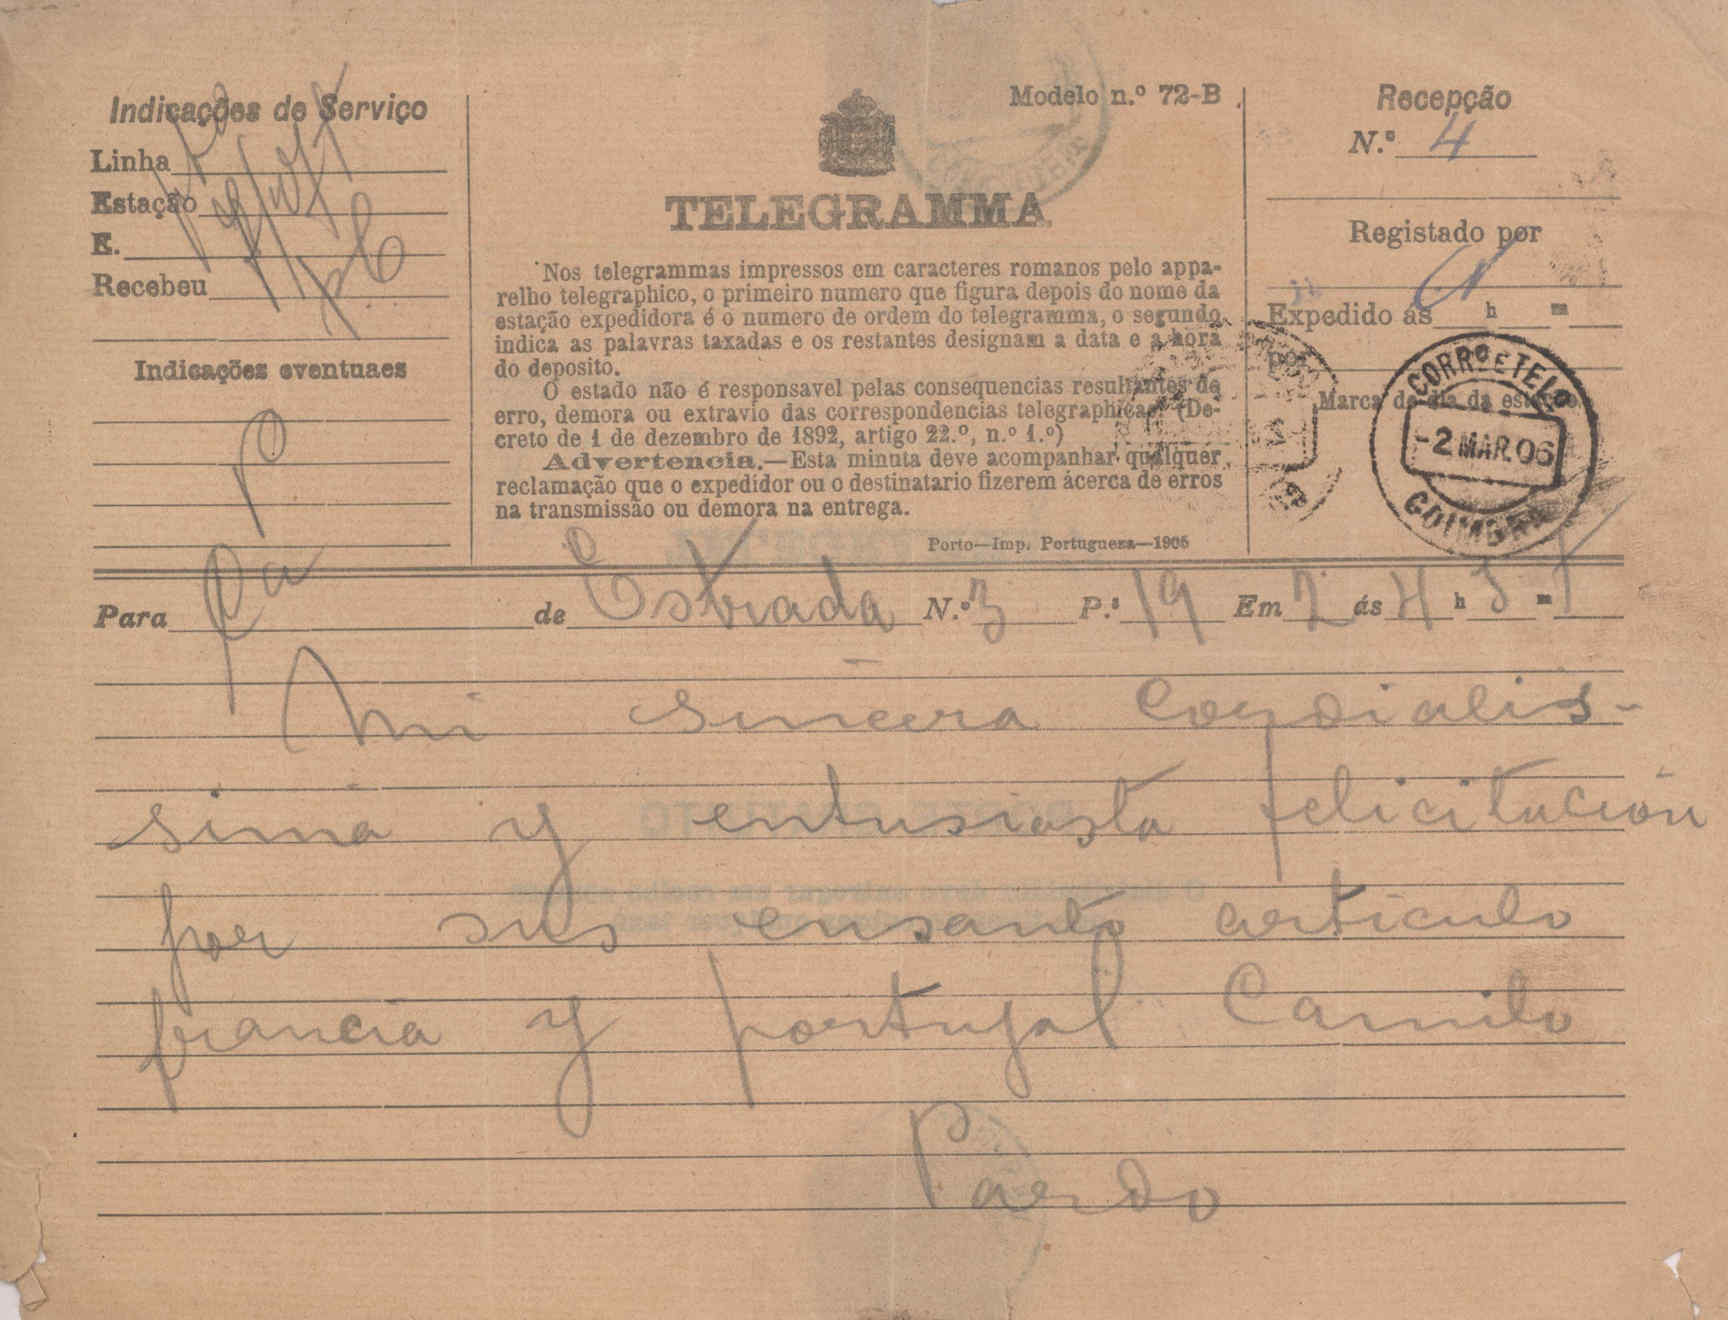 Indicações de Serviço
Linha
Estação
E.
Recebeu
Indicações eventuaes
Modelo n.º 72-B
TELEGRAMMA
Nos telegrammas impressos em caracteres romanos pelo appa-
relho telegraphico, o primeiro numero que figura depois do nome da
estação expedidora é o numero de ordem do telegramma, o segundo
indica as palavras taxadas e os restantes designam a data e a hora
do deposito.
O estado não é responsavel pelas consequencias resultantes de
erro, demora ou extravio das correspondencias telegraphicas. (De-
creto de 1 de dezembro de 1892, artigo 22.º, n.º 1.º)
Advertencia.—Esta minuta deve acompanhar qualquer
reclamação que o expedidor ou o destinatario fizerem ácerca de erros
na transmissão ou demora na entrega.
Porto—Imp. Portugueza—1905
Recepção
N.º 4
Registado por
Expedido ás h m
Marca de dia da estação
CORRº E TELº
-2 MAR. 06
COIMBRA
Para de Estrada N.º 3 P.s 19 Em 2 ás 4 h 5 m T
Mi sincera cordialis-
sima y entusiasta felicitación
por sus ensanto articulo
francia y portugal Camilo
Pardo